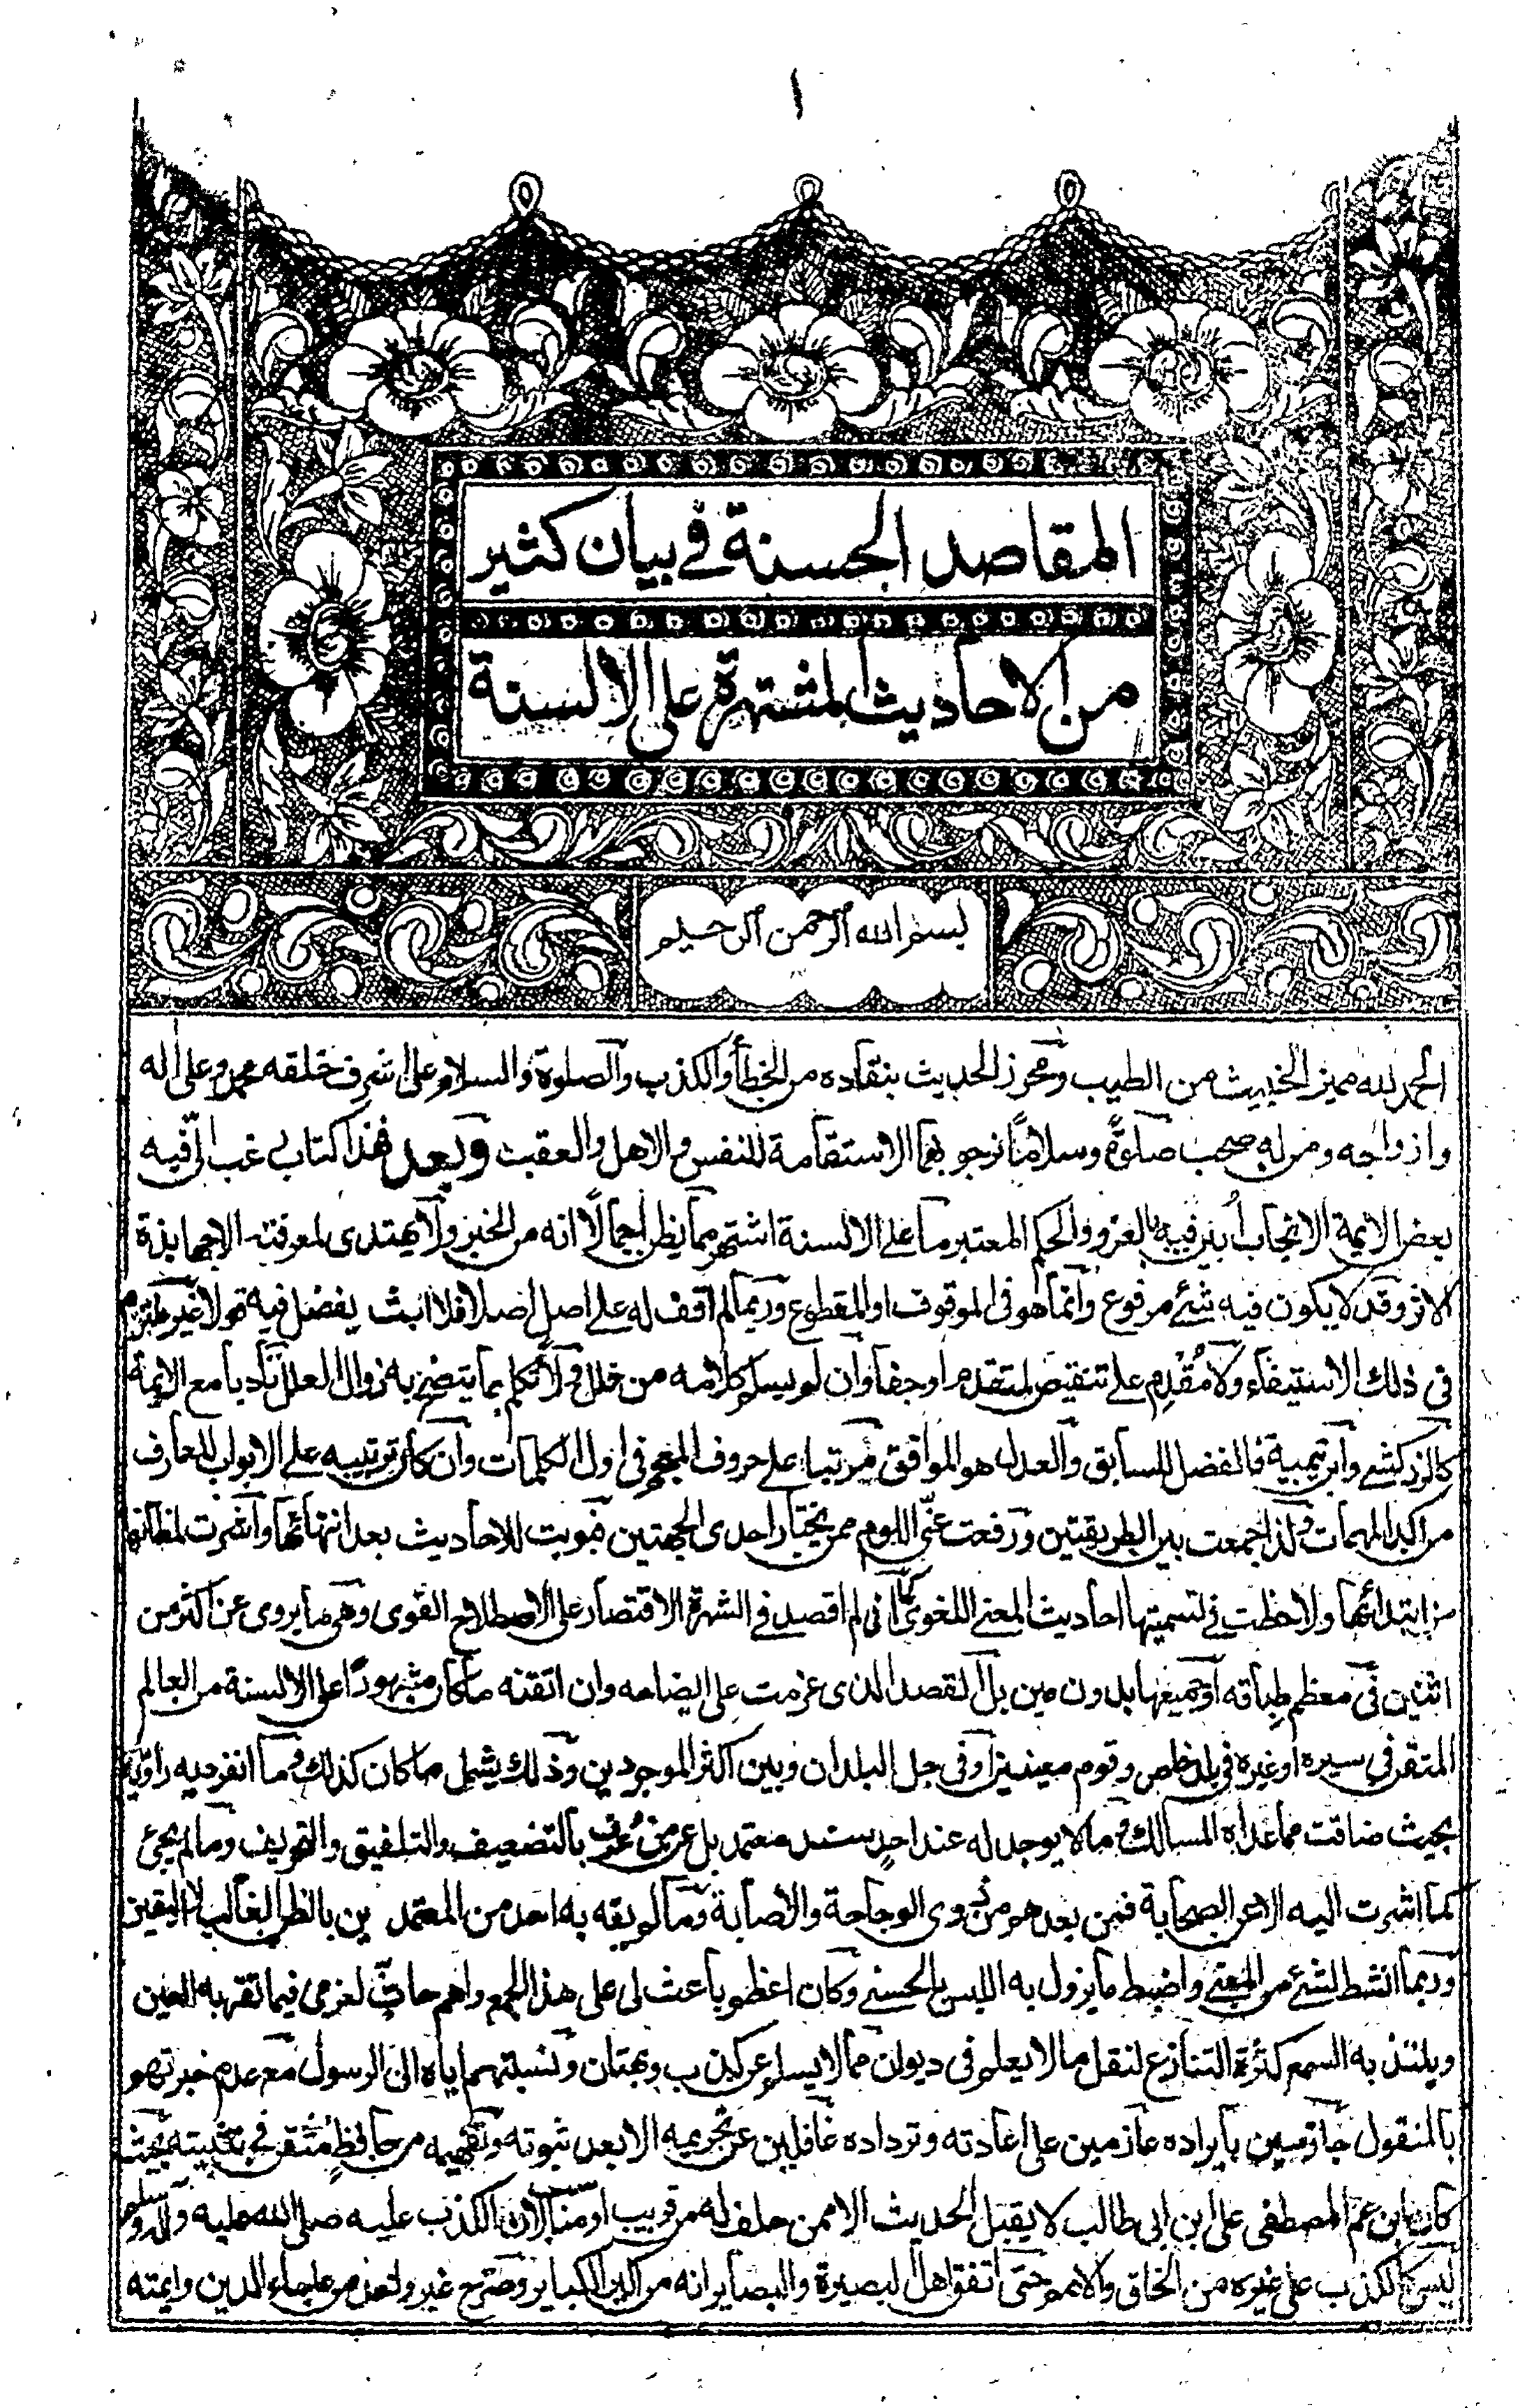 ١
المقاصد الحسنة في بيان كثير
من الاحاديث المشتهرة على الالسنة
بسم الله الرحمن الرحيم
الحمد لله مميز الخبيث من الطيب ومحرز الحديث بنقاده من الخطأ والكذب والصلوة والسلام على اشرف خلقه محمد وعلى اله
وازواجه ومن له صحب صلوة وسلاما نرجو بهما الاستقامة للنفس والاهل والعقب وبعد فهذا كتاب رغب الي فيه
بعض الايمة الانجاب أبين فيه بالعزو والحكم المعتبر ما على الالسنة اشتهر مما يظن اجمالا انه من الخبر ولا يهتدى لمعرفته الا جهابذة
الاثر وقد لا يكون فيه شئ مرفوع وانما هو في الموقوف او المقطوع وربما لم اقف له على اصل اصلا فلا ابث يفضل فيه قولا غير ملتزم
في ذلك الاستيفاء ولا مقدم على تنقيص لمتقدم او جفا وان لم يسلم كلامه من خلل ولا تكلم بما يتضح به زوال العلل تأدبا مع الايمة
كالزركشي وابن تيمية فالفضل للسابق والعدل هو الموافق مرتبا على حروف المعجم في اول الكلمات وان كان ترتيبه على الابواب للعارف
من اكد المهمات ولذا جمعت بين الطريقتين ورفعت عني اللوم ممن يختار احدى الجهتين فبوبت للاحاديث بعد انتهائها واشرت لمظانها
من ابتدائها ولاحظت في تسميتها احاديث المعنى اللغوى كما اني لم اقصد في الشهرة الاقتصار على الاصطلاح القوى وهي ما يروى عن اكثر من
اثنين في معظم طباقه او جميعها بدون مين بل القصد الذى عزمت على ايضاحه وان اتقنه ما كان مشهورا على الالسنة من العالم
المتقن في سيره او غيره في بلد خاص وقوم معينين او في جل البلدان وبين اكثر الموجودين وذلك يشمل ما كان كذلك وما انفرد به راويه
بحيث ضاقت مما عداه المسالك وما لا يوجد له عند احد سند معتمد بل عمن عرف بالتضعيف والتلفيق والتحريف وما لم يجئ
كما اشرت اليه الا عن الصحابة فمن بعدهم من ذوى الوجاهة والاصابة وما لم يفه به احد من المعتمدين بالظن الغالب لا اليقين
وربما انشط لشئ من المعنى واضبط ما يزول به اللبس بالحسنى وكان اعظم باعث لى على هذا الجمع واهم حاث لعزمى فيما تقر به العين
ويلتذ به السمع كثرة التنازع لنقل ما لا يعلم في ديوان مما لا يسلم عن كذب وبهتان ونسبتهم اياه الى الرسول مع عدم خبرتهم
بالمنقول جازمين بايراده عازمين على اعادته وترداده غافلين عن تحريمه الا بعد ثبوته وتفهيمه من حافظ متقن في تثبيته بحيث
كان ابن عم المصطفى على ابن ابى طالب لا يقبل الحديث الا ممن حلف له من قريب او مناسب لان الكذب عليه صلى الله عليه وآله وسلم
ليس كالكذب على غيره من الخلق والامم حتى اتفق اهل البصيرة والبصاير انه من اكبر الكباير وصرح غير واحد من علماء الدين وايمته